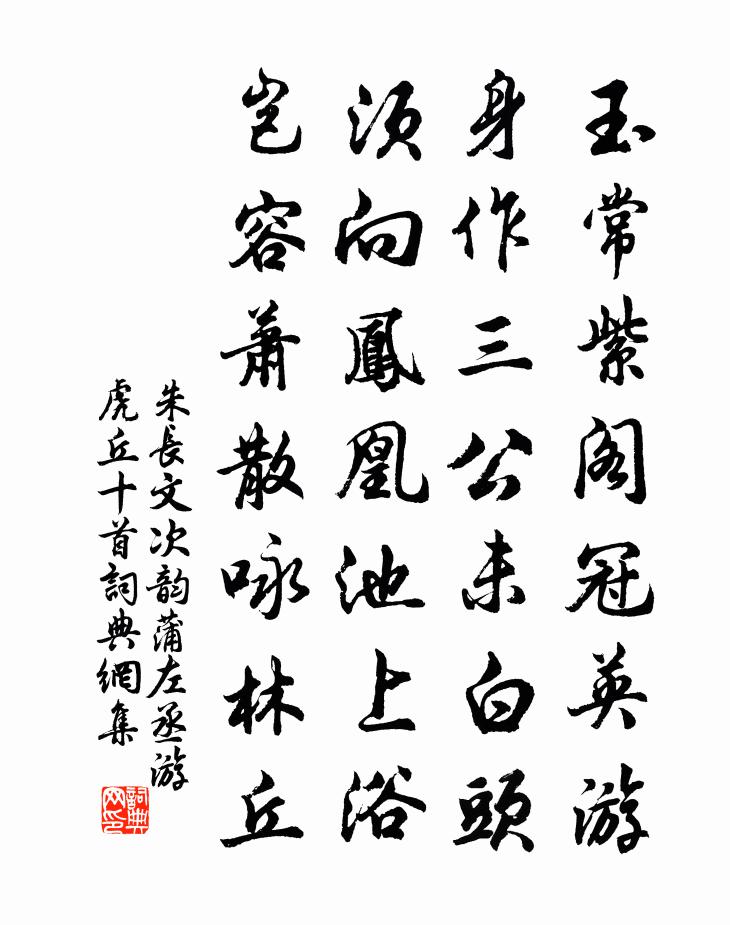 玉常紫阁冠英游
身作三公未白頭
須向鳳凰池上浴
豈容蕭散咏林丘
朱長文次韵蒲左丞游
虎丘十首詞典網集
詞典网印